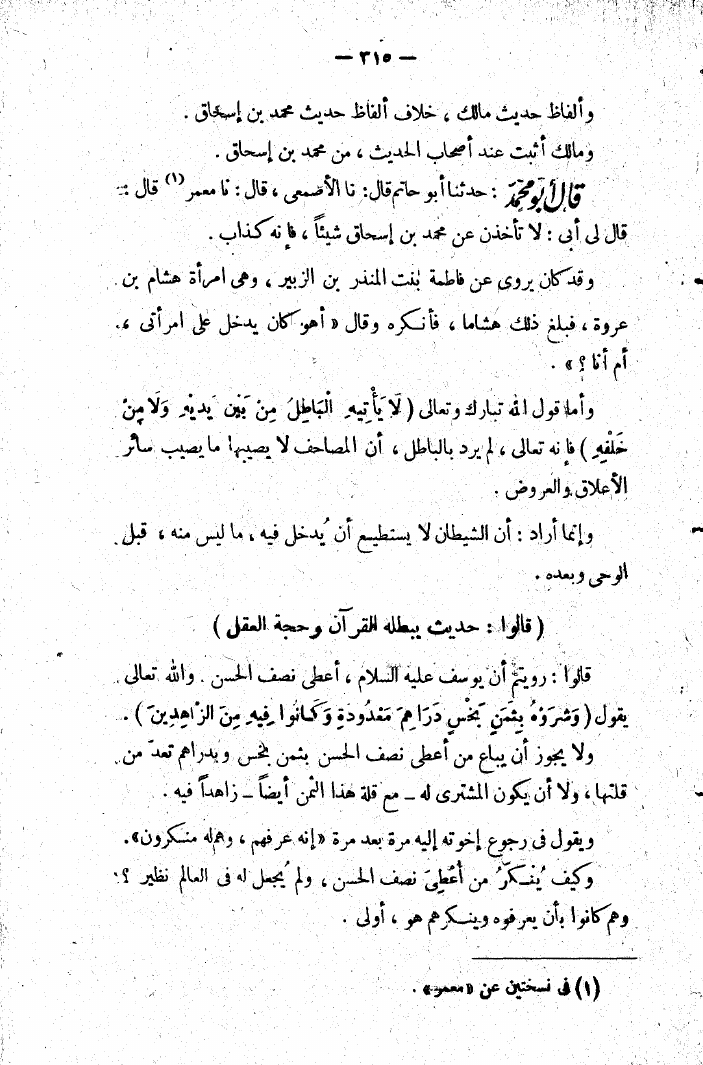 — ٣١٥ —
وألفاظ حديث مالك ، خلاف ألفاظ حديث محمد بن إسحاق .
ومالك أثبت عند أصحاب الحديث ، من محمد بن إسحاق .
قال أبو محمد : حدثنا أبو حاتم قال : نا الأصمعى ، قال : نا معمر (١) قال :
قال لى أبى : لا تأخذن عن محمد بن إسحاق شيئاً ، فإنه كذاب .
وقد كان يروى عن فاطمة بنت المنذر بن الزبير ، وهى امرأة هشام بن
عروة ، فبلغ ذلك هشاما ، فأنكره وقال « أهو كان يدخل على امرأتى ،
أم أنا ؟ » .
وأما قول الله تبارك وتعالى ( لَا يَأْتِيهِ الْبَاطِلُ مِنْ بَيْنِ يَدَيْهِ وَلَا مِنْ
خَلْفِهِ ) فإنه تعالى ، لم يرد بالباطل ، أن المصاحف لا يصيبها ما يصيب سائر
الأعلاق والعروض .
وإنما أراد : أن الشيطان لا يستطيع أن يُدخل فيه ، ما ليس منه ، قبل
الوحى وبعده .
( قالوا : حديث يبطله القرآن وحجة العقل )
قالوا : رويتم أن يوسف عليه السلام ، أعطى نصف الحسن . والله تعالى
يقول ( وَشَرَوْهُ بِثَمَنٍ بَخْسٍ دَرَاهِمَ مَعْدُودَةٍ وَكَانُوا فِيهِ مِنَ الزَّاهِدِينَ ) .
ولا يجوز أن يباع من أعطى نصف الحسن بثمن بخس وبدراهم تعدّ من
قلتها ، ولا أن يكون المشترى له ـ مع قلة هذا الثمن أيضاً ـ زاهداً فيه .
ويقول فى رجوع إخوته إليه مرة بعد مرة «إنه عرفهم ، وهم له منكرون».
وكيف يُنْكَرُ من أُعْطِىَ نصف الحسن ، ولم يُجعل له فى العالم نظير ؟
وهم كانوا بأن يعرفوه وينكرهم هو ، أولى .
(١) فى نسختين عن «معمر» .